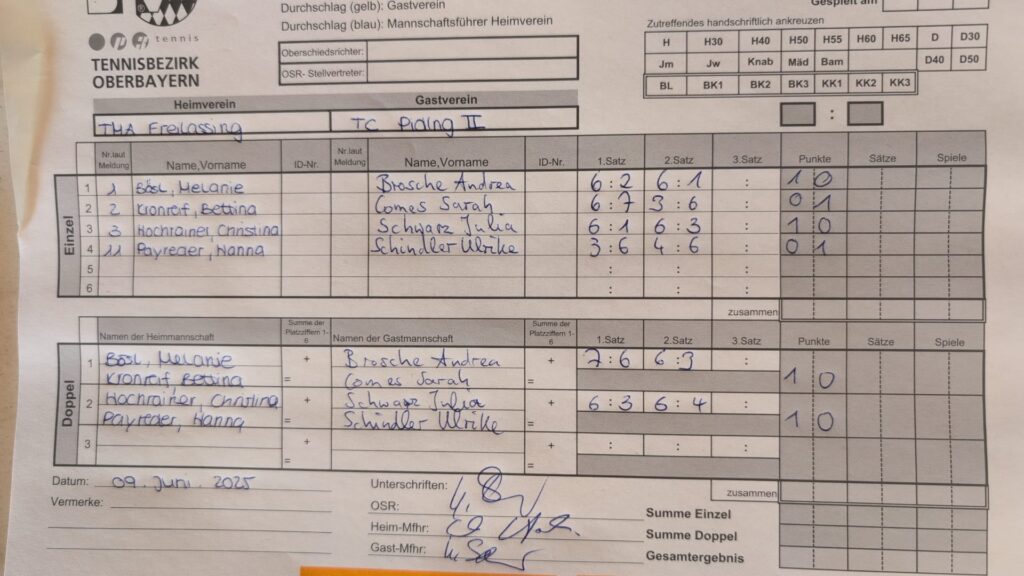 Durchschlag (gelb): Gastverein
Durchschlag (blau): Mannschaftsführer Heimverein
Gespielt am
Zutreffendes handschriftlich ankreuzen
tennis
TENNISBEZIRK
OBERBAYERN
Oberschiedsrichter:
OSR- Stellvertreter:
H H30 H40 H50 H55 H60 H65 D D30
Jm Jw Knab Mäd Bam D40 D50
BL BK1 BK2 BK3 KK1 KK2 KK3
Heimverein Gastverein :
Freilassing TC Piding II
Nr.laut Meldung Name,Vorname ID-Nr. Nr.laut Meldung Name,Vorname ID-Nr. 1.Satz 2.Satz 3.Satz Punkte Sätze Spiele
Einzel
1 1 Bösl, Melanie Brosche Andrea 6:2 6:1 : 1 0
2 2 Kronreif, Bettina Comes Sarah 6:7 3:6 : 0 1
3 3 Hochrainer, Christina Schwarz Julia 6:1 6:3 : 1 0
4 11 Payreder, Hanna Schindler Ulrike 3:6 4:6 : 0 1
5 : : :
6 : : :
zusammen
Namen der Heimmannschaft Summe der Platzziffern 1-6 Namen der Gastmannschaft Summe der Platzziffern 1-6 1.Satz 2.Satz 3.Satz Punkte Sätze Spiele
Doppel
1 Bösl, Melanie + Brosche Andrea + 7:6 6:3 :
Kronreif, Bettina = Comes Sarah = 1 0
2 Hochrainer, Christina + Schwarz Julia + 6:3 6:4 :
Payreder, Hanna = Schindler Ulrike = 1 0
3 + + : : :
= =
zusammen
Datum: 09. Juni 2025 Unterschriften:
Vermerke: OSR:
Summe Einzel
Heim-Mfhr:
Summe Doppel
Gast-Mfhr:
Gesamtergebnis